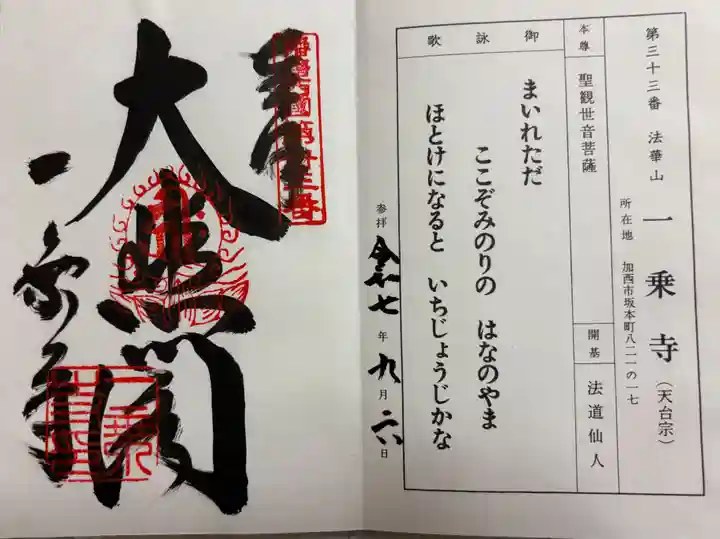 第三十三番 法華山 一乗寺 (天台宗)
所在地 加西市坂本町八二一の一七
本尊 聖観世音菩薩
開基 法道仙人
御詠歌
まいれただ
ここぞみのりの はなのやま
ほとけになると いちじょうじかな
参拝 令和七年九月二六日
奉拝
播磨西國第丗三番
大悲閣
一乗寺